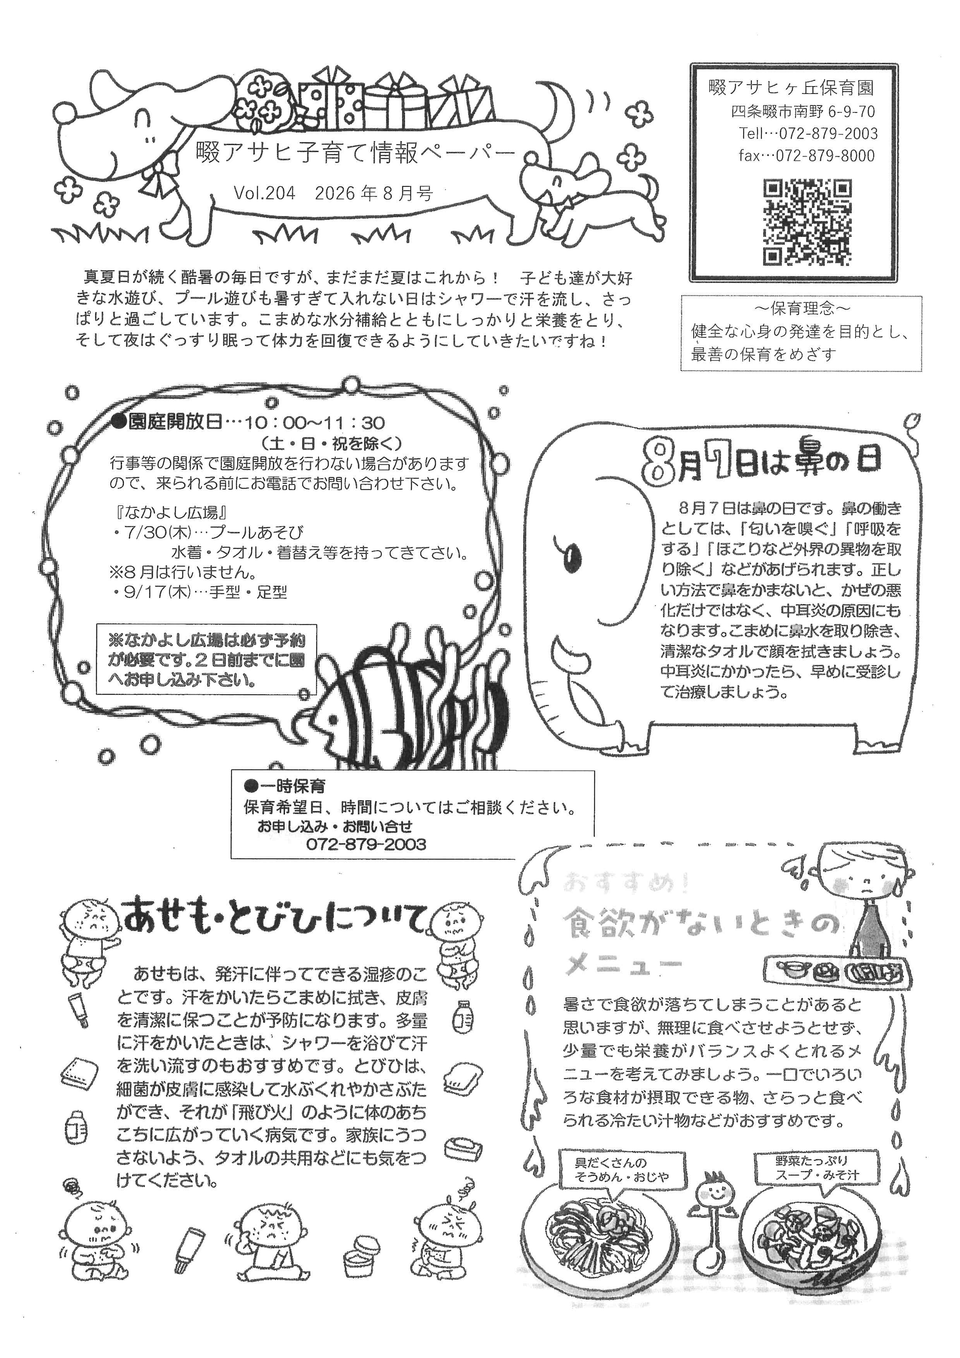 畷アサヒ子育て情報ペーパー
Vol.204　2026年8月号
畷アサヒヶ丘保育園
四条畷市南野 6-9-70
Tell…072-879-2003
fax…072-879-8000
～保育理念～
健全な心身の発達を目的とし、
最善の保育をめざす
真夏日が続く酷暑の毎日ですが、まだまだ夏はこれから！　子ども達が大好
きな水遊び、プール遊びも暑すぎて入れない日はシャワーで汗を流し、さっ
ぱりと過ごしています。こまめな水分補給とともにしっかりと栄養をとり、
そして夜はぐっすり眠って体力を回復できるようにしていきたいですね！
●園庭開放日…10：00～11：30
（土・日・祝を除く）
行事等の関係で園庭開放を行わない場合があります
ので、来られる前にお電話でお問い合わせ下さい。
『なかよし広場』
・7/30(木)…プールあそび
水着・タオル・着替え等を持ってきてさい。
※8月は行いません。
・9/17(木)…手型・足型
※なかよし広場は必ず予約
が必要です。2日前までに園
へお申し込み下さい。
8月7日は鼻の日
8月7日は鼻の日です。鼻の働き
としては、「匂いを嗅ぐ」「呼吸を
する」「ほこりなど外界の異物を取
り除く」などがあげられます。正し
い方法で鼻をかまないと、かぜの悪
化だけではなく、中耳炎の原因にも
なります。こまめに鼻水を取り除き、
清潔なタオルで顔を拭きましょう。
中耳炎にかかったら、早めに受診し
て治療しましょう。
●一時保育
保育希望日、時間についてはご相談ください。
お申し込み・お問い合せ
072-879-2003
あせも・とびひについて
あせもは、発汗に伴ってできる湿疹のこ
とです。汗をかいたらこまめに拭き、皮膚
を清潔に保つことが予防になります。多量
に汗をかいたときは、シャワーを浴びて汗
を洗い流すのもおすすめです。とびひは、
細菌が皮膚に感染して水ぶくれやかさぶた
ができ、それが「飛び火」のように体のあち
こちに広がっていく病気です。家族にうつ
さないよう、タオルの共用などにも気をつ
けてください。
おすすめ！
食欲がないときの
メニュー
暑さで食欲が落ちてしまうことがあると
思いますが、無理に食べさせようとせず、
少量でも栄養がバランスよくとれるメ
ニューを考えてみましょう。一口でいろい
ろな食材が摂取できる物、さらっと食べ
られる冷たい汁物などがおすすめです。
具だくさんの
そうめん・おじや
野菜たっぷり
スープ・みそ汁